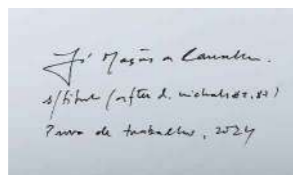 José Maçãs de Carvalho.
s/título (after d. michals
Prova de trabalho, 2024